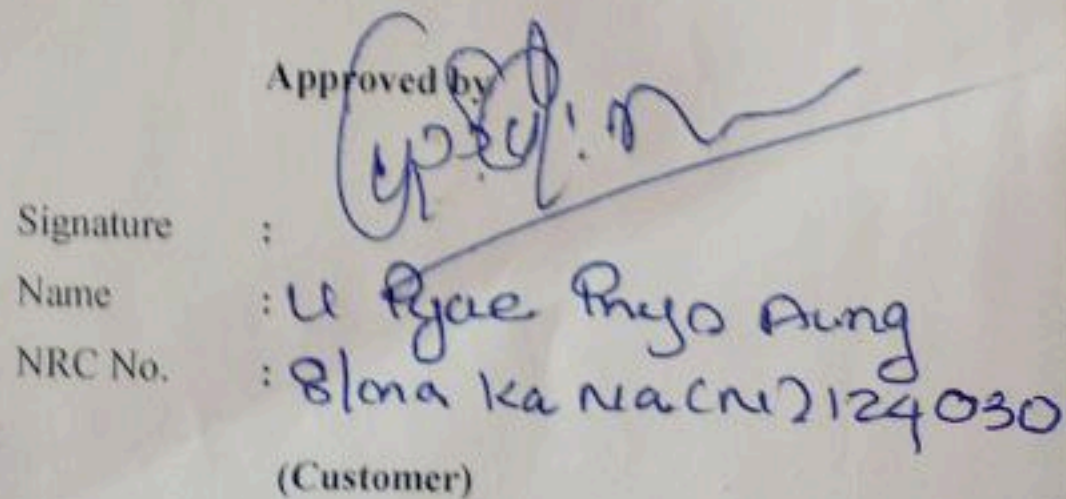 Approved by
Signature :
Name : U Pyae Phyo Aung
NRC No. : 8/ma ka na (N) 124030
(Customer)